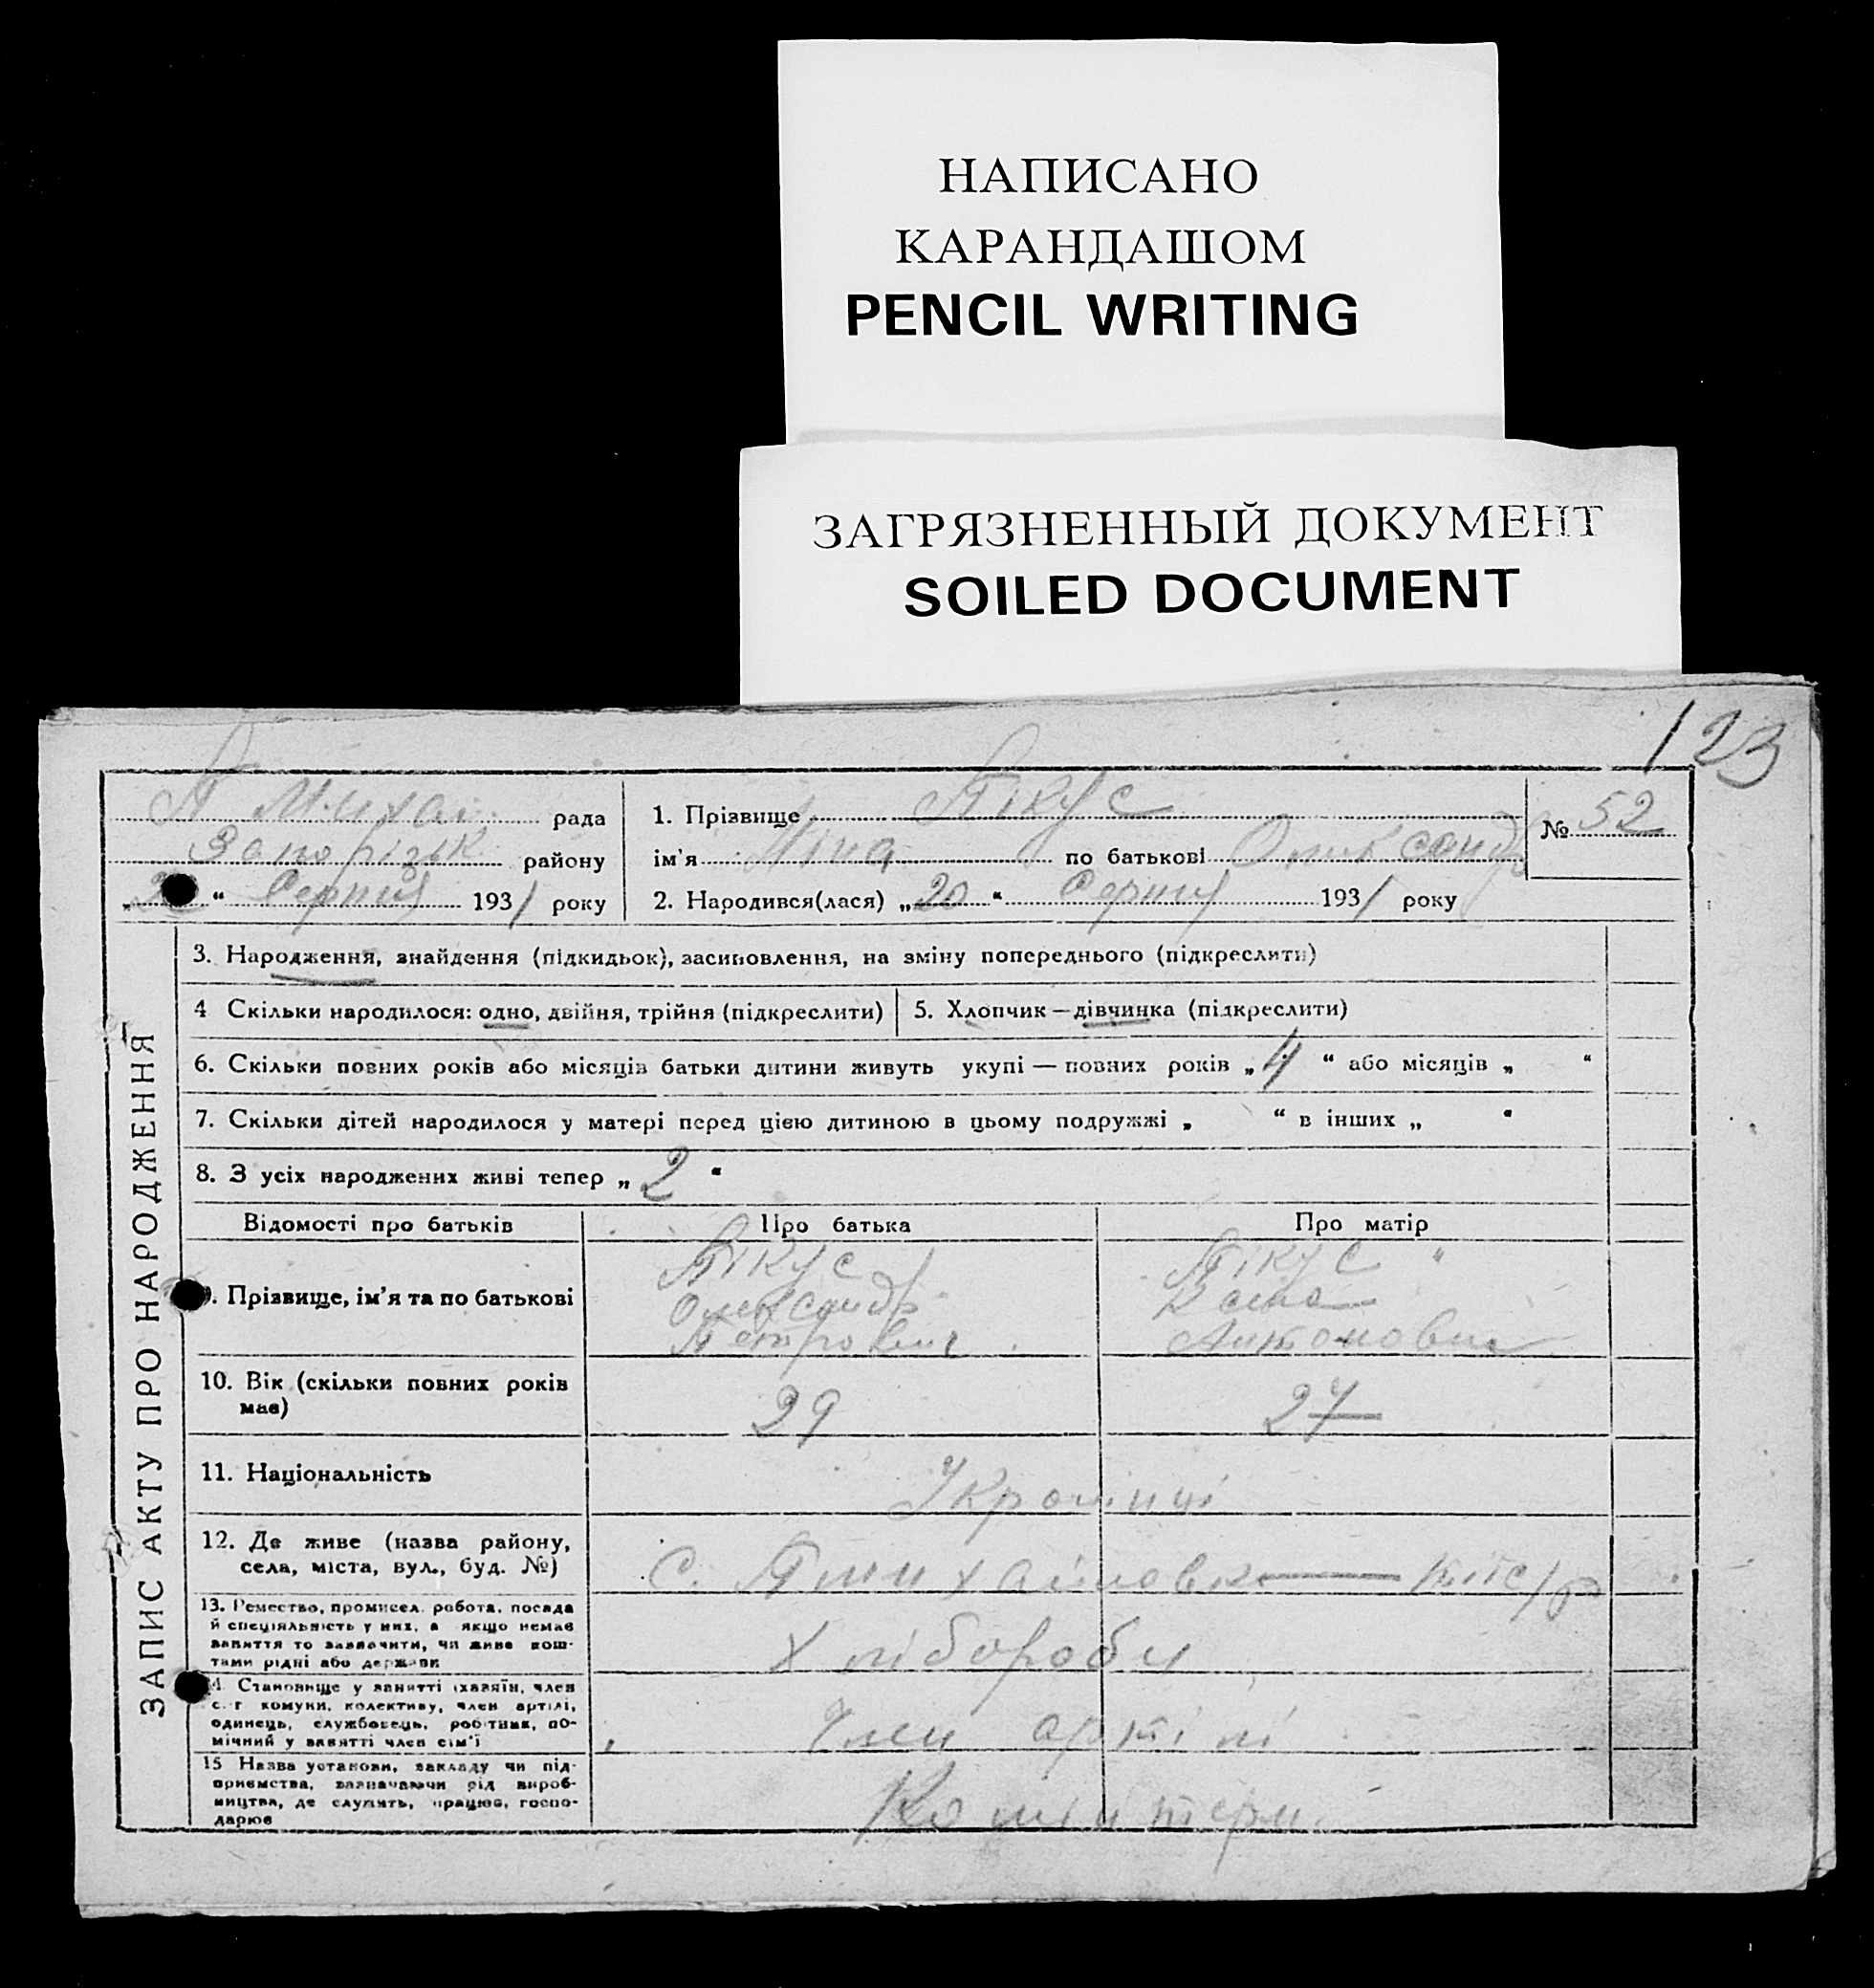 НАПИСАНО
КАРАНДАШОМ
PENCIL WRITING
ЗАГРЯЗНЕННЫЙ ДОКУМЕНТ
SOILED DOCUMENT
123
рада
Запорізьк району
“ Серпня 1931 року
1. Прізвище Пікус
ім'я Ніна по батькові Олександр
2. Народився(лася) „20“ Серпня 1931 року
№ 52
ЗАПИС АКТУ ПРО НАРОДЖЕННЯ
3. Народження, знайдення (підкидьок), засиновлення, на зміну попереднього (підкреслити)
4 Скільки народилося: одно, двійня, трійня (підкреслити)
5. Хлопчик — дівчинка (підкреслити)
6. Скільки повних років або місяців батьки дитини живуть укупі — повних років „4“ або місяців „ “
7. Скільки дітей народилося у матері перед цією дитиною в цьому подружжі „ “ в інших „ “
8. З усіх народжених живі тепер „2“
Відомості про батьків Про батька Про матір
9. Прізвище, ім'я та по батькові
Пікус
Олександр
Петрович
Пікус
Антонович
10. Вік (скільки повних років
має)
29 27
11. Національність
Українці
12. Де живе (назва району,
села, міста, вул., буд. №)
С.
13. Ремество, промисел, робота, посада
й спеціяльність у них, а якщо немає
заняття то зазначити, чи живе кош-
тами рідні або держави
Хлібороби
14. Становище у занятті (хазяїн, член
с.-г комуни, колективу, член артілі,
одинець, службовець, робітник, по-
мічний у занятті член сім'ї
Член артілі
15 Назва установи, закладу чи під-
приємства, зазначаючи рід вироб-
ництва, де служить, працює, госпо-
дарює
Комінтерн